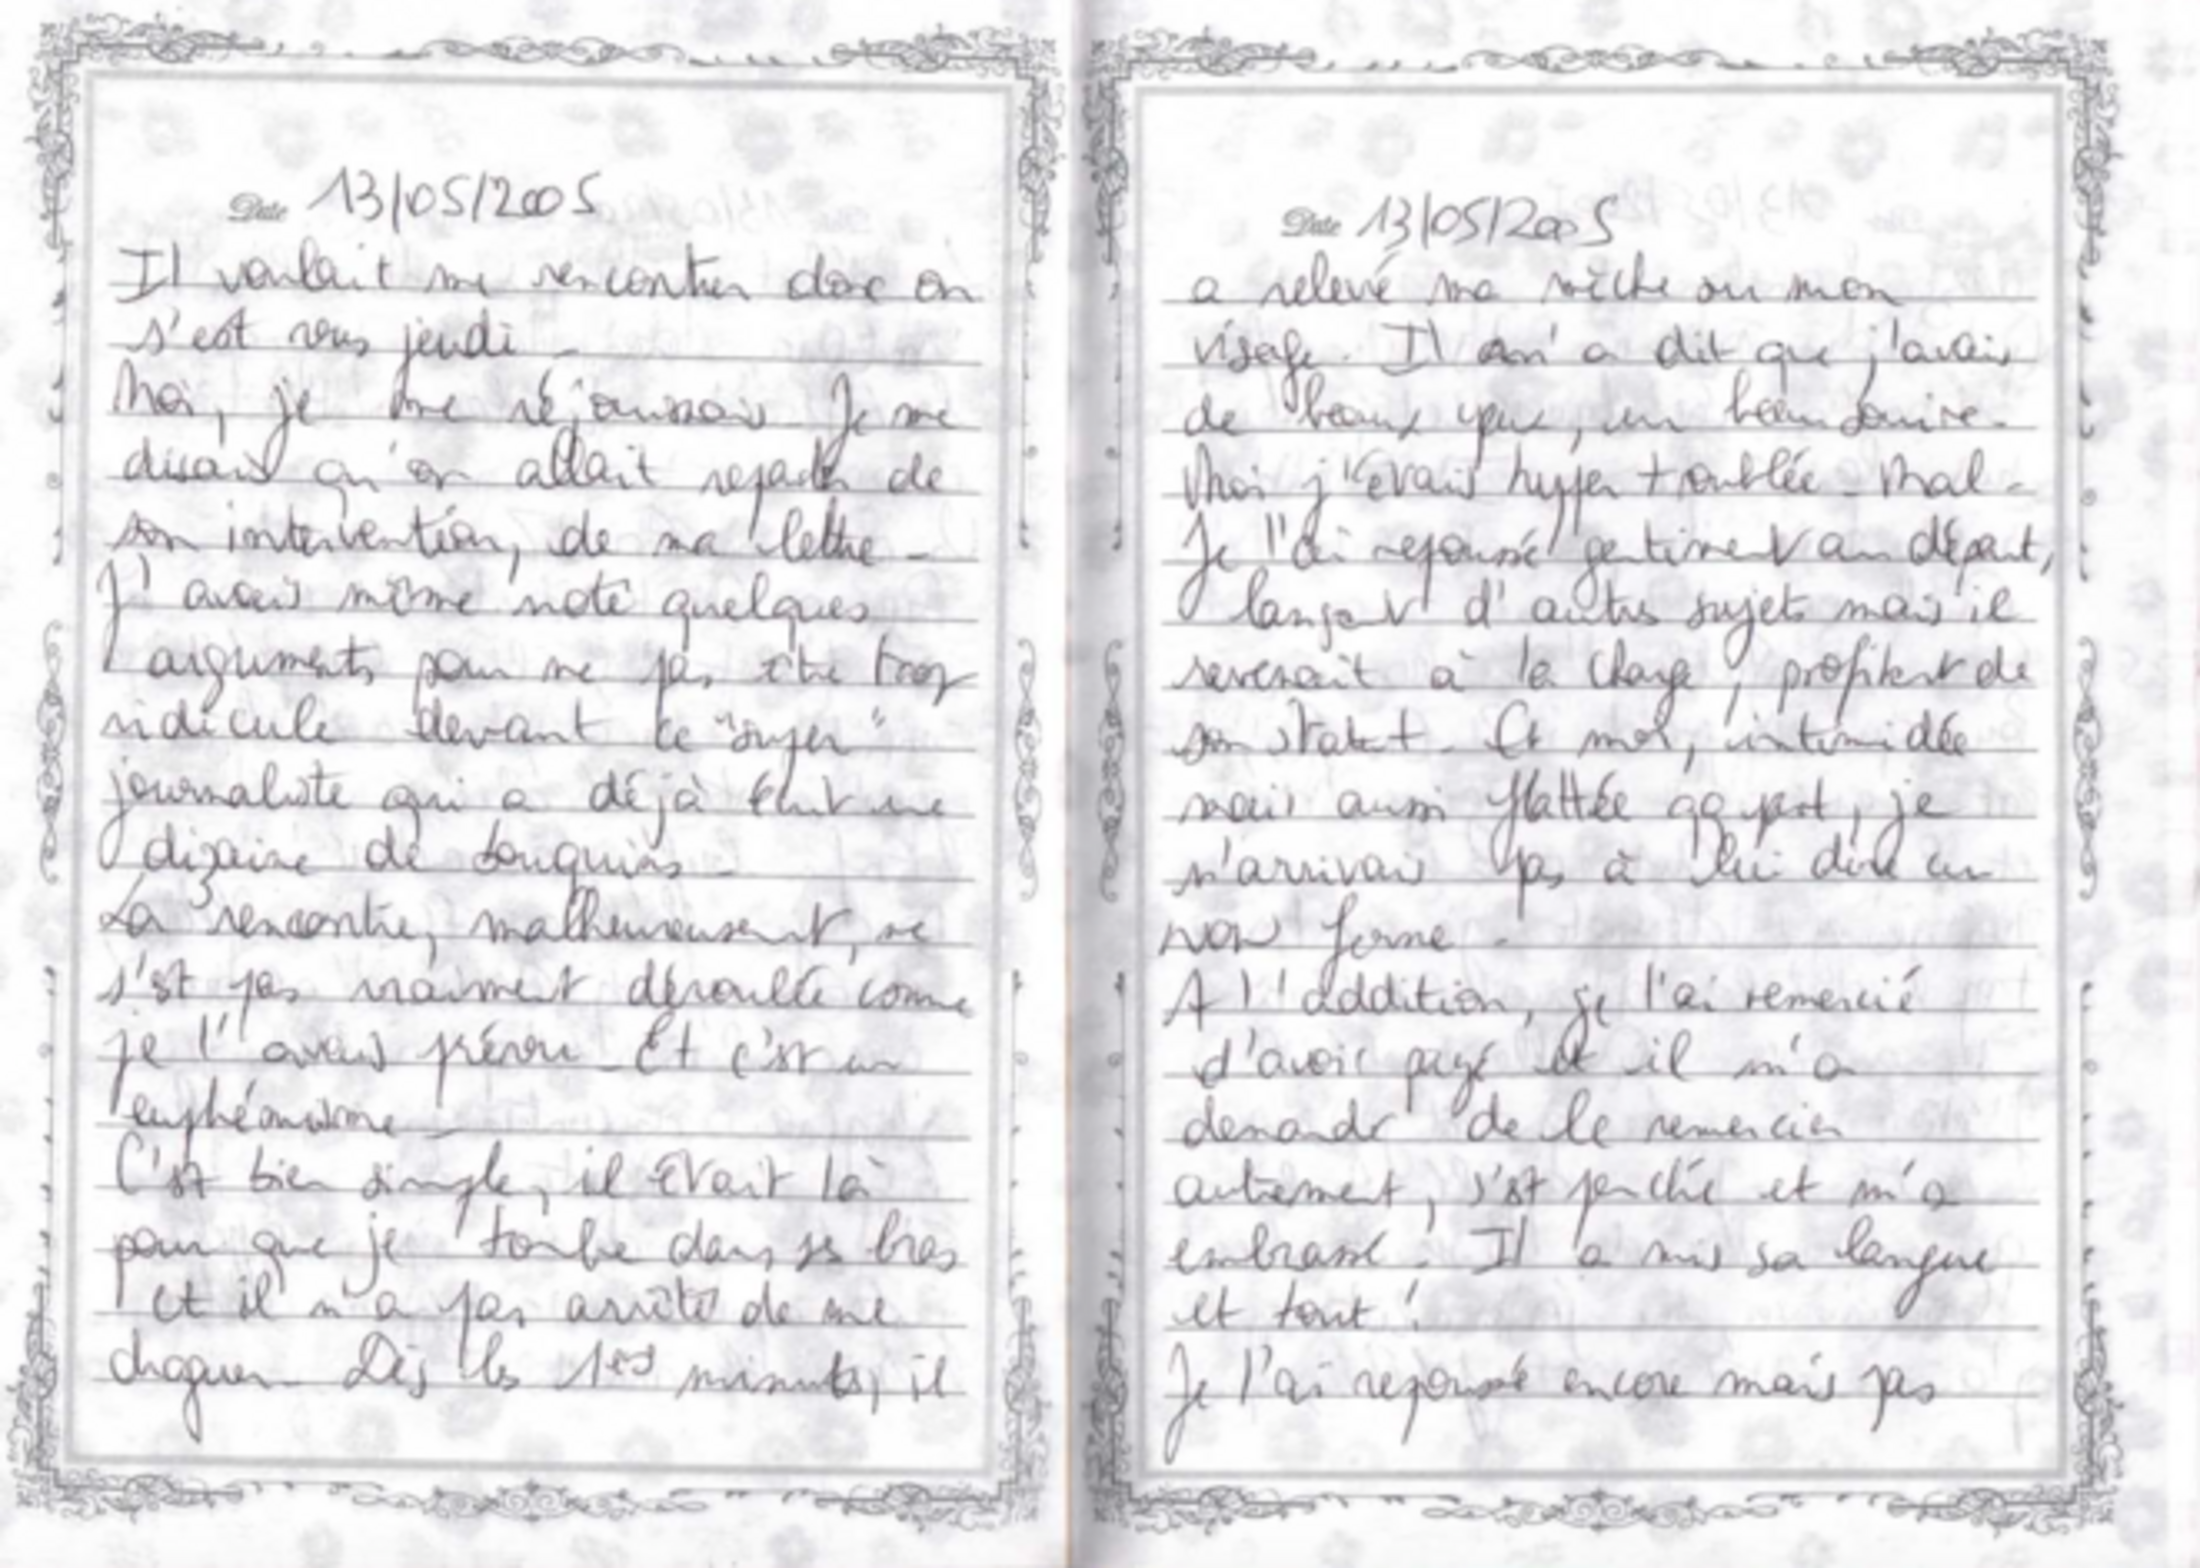 Date 13/05/2005
Il voulait me rencontrer donc on
s'est vus jeudi.
Moi, je me réjouissais Je me
disais qu'on allait reparler de
son intervention, de ma lettre.
J'avais même noté quelques
arguments pour ne pas être trop
ridicule devant ce "super"
journaliste qui a déjà écrit une
dizaine de bouquins.
La rencontre, malheureusement, ne
s'est pas vraiment déroulée comme
je l'avais prévu. Et c'est un
euphémisme.
C'est bien simple, il était là
pour que je tombe dans ses bras
et il n'a pas arrêté de me
draguer. Dès les 1es minutes, il
Date 13/05/2005
a relevé ma mèche sur mon
visage. Il m'a dit que j'avais
de beaux yeux, un beau sourire.
Moi j'étais hyper troublée. Mal.
Je l'ai repoussé gentiment au départ,
lançant d'autres sujets mais il
revenait à la charge, profitant de
son statut. Et moi, intimidée
mais aussi flattée qq part, je
n'arrivais pas à lui dire un
NON ferme.
A l'addition, je l'ai remercié
d'avoir payé et il m'a
demandé de le remercier
autrement, s'est penché et m'a
embrassé. Il a mis sa langue
et tout !
Je l'ai repoussé encore mais pas